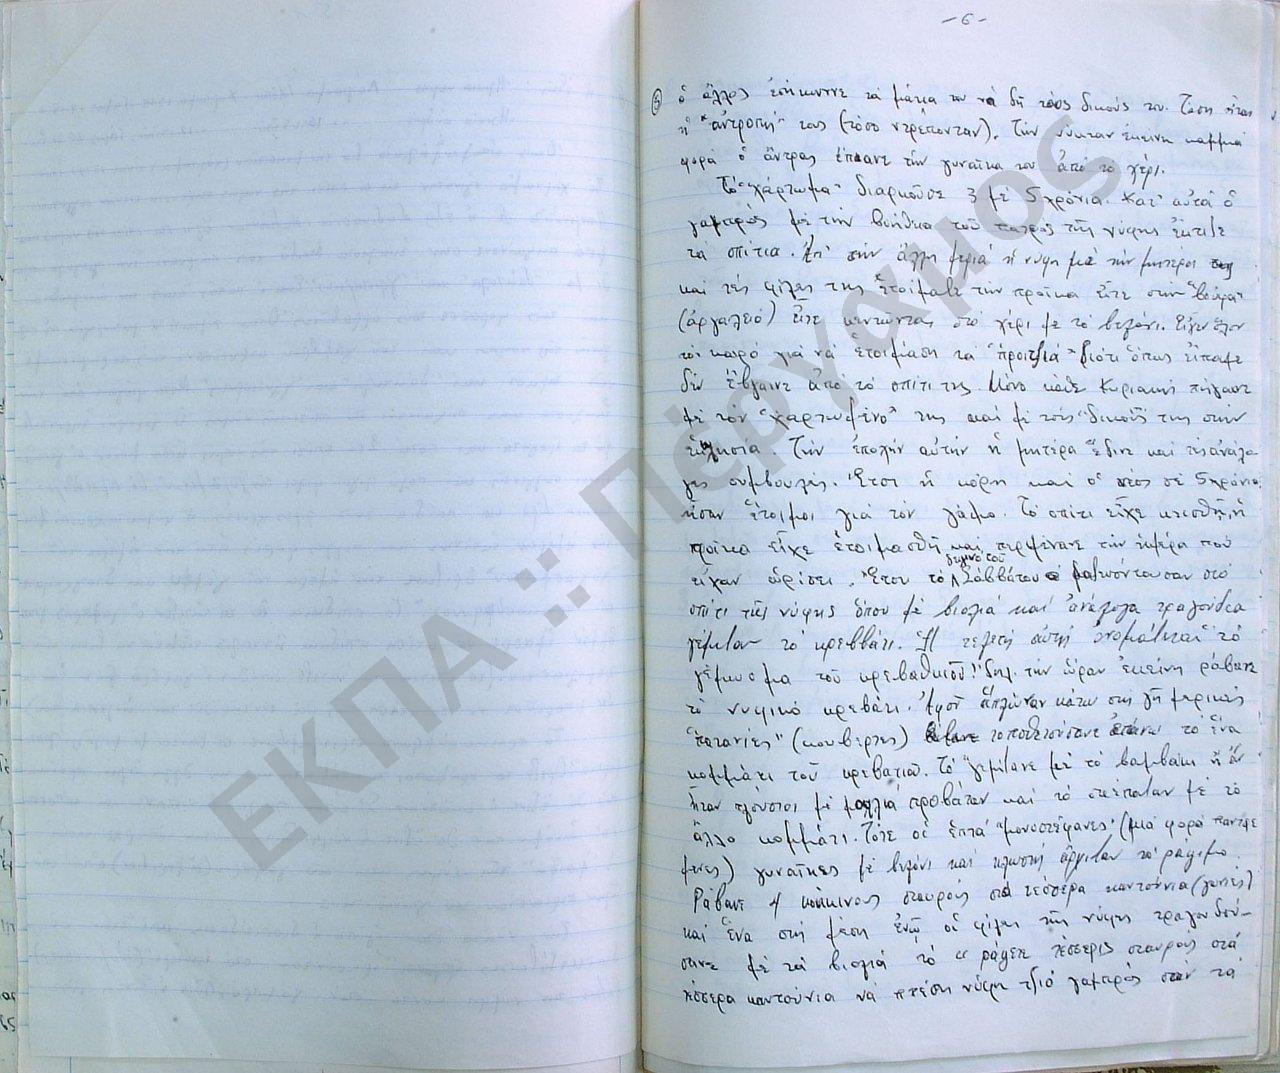 -6-
⑤ ὁ ἄλλος ἐσήκωννε τὰ μάτια του νὰ δῆ τοὺς δικούς του. Τόση ἦταν
ἡ "ἀντροπή" τους (τόσο ντρέπονταν). Τὴν νύκταν ἐκείνη καμμιὰ
φορὰ ὁ ἄντρας ἔπιανε τὴν γυναῖκα του ἀπὸ τὸ χέρι.
Τὸ "χάρτωμα" διαρκοῦσε 3 μὲ 5 χρόνια. Κατ' αὐτὰ ὁ
γαμπρὸς μὲ τὴν βοήθεια τοῦ πατρὸς τῆς νύφης ἔκτιζε
τὰ σπίτια. Ἀπ' τὴν ἄλλη μεριὰ ἡ νύφη μὲ τὴν μητέρα
καὶ τὲς φίλες της ἑτοίμαζε τὴν προῖκα εἴτε στὴν "βούφα"
(ἀργαλειό) εἴτε κεντώντας στὸ χέρι μὲ τὸ βελόνι. Εἶχεν ὅλον
τὸν καιρὸ γιὰ νὰ ἑτοιμάση τὰ "προιτζιά" διότι ὅπως εἴπαμε
δὲν ἔβγαινε ἀπὸ τὸ σπίτι της. Μόνο κάθε Κυριακὴ πήγαινε
μὲ τὸν "χαρτωμένο" της καὶ μὲ τοὺς "δικούς" της στὴν
ἐκκλησία. Τὴν ἐποχὴν αὐτὴν ἡ μητέρα ἔδινε καὶ τὲς ἀνάλο-
γες συμβουλές. Ἔτσι ἡ κόρη καὶ ὁ νέος σὲ 5 χρόνια
ἦσαν ἕτοιμοι γιὰ τὸν γάμο. Τὸ σπίτι εἶχε κτισθῆ, ἡ
προῖκα εἶχε ἑτοιμασθῆ καὶ περιμένανε τὴν ἡμέρα ποὺ
εἶχαν ὁρίσει. Ἔτσι τὸ Σάββατον μαζευόντουσαν στὸ
σπίτι τῆς νύφης ὅπου μὲ βιολιὰ καὶ ἀνάλογα τραγούδια
γέμιζαν τὸ κρεββάτι. Ἡ τελετὴ αὐτὴ ὀνομάζεται "τὸ
γέμωσμα τοῦ κρεβαθκιοῦ". Δηλ. τὴν ὥραν ἐκείνη ράβανε
τὸ νυφικὸ κρεβάτι. Ἀφοῦ ἅπλωναν κάτω στὴ γῆ μερικὲς
"πατανίες" (κουβέρτες) τοποθετούσανε ἐπάνω τὸ ἕνα
κομμάτι τοῦ κρεβατιοῦ. Τὸ γεμίζανε μὲ τὸ βαμβάκι ἢ ἂν
ἦταν πλούσιοι μὲ μαλλιὰ προβάτων καὶ τὸ σκέπαζαν μὲ τὸ
ἄλλο κομμάτι. Τότε οἱ ἑπτὰ "μονοστέφανες" (μιὰ φορὰ παντρε
μένες) γυναῖκες μὲ βελόνι καὶ κλωστὴ ἄρχιζαν τὸ ράψιμο.
Ράβανε 4 κόκκινους σταυροὺς στὰ τέσσερα καντούνια (γωνιές)
καὶ ἕνα στὴ μέση ἐνῶ οἱ φίλες τῆς νύφης τραγουδού-
σανε μὲ τὰ βιολιὰ τὸ "ράψετε τέσσερις σταυροὺς στὰ
τέσσερα καντούνια νὰ ππέση νύφη τζιὸ γαμπρὸς σὰν τὰ
ΕΚΠΑ :: Πέργαμος